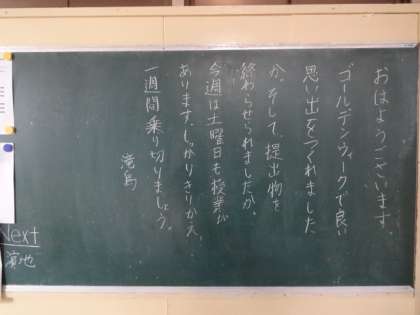 おはようございます。
ゴールデンウィークで良い
思い出をつくれました
か。そして、提出物を
終わらせられましたか。
今週は土曜日も授業が
あります。しっかりきりかえ、
一週間乗り切りましょう。
滝島
Next
濱地